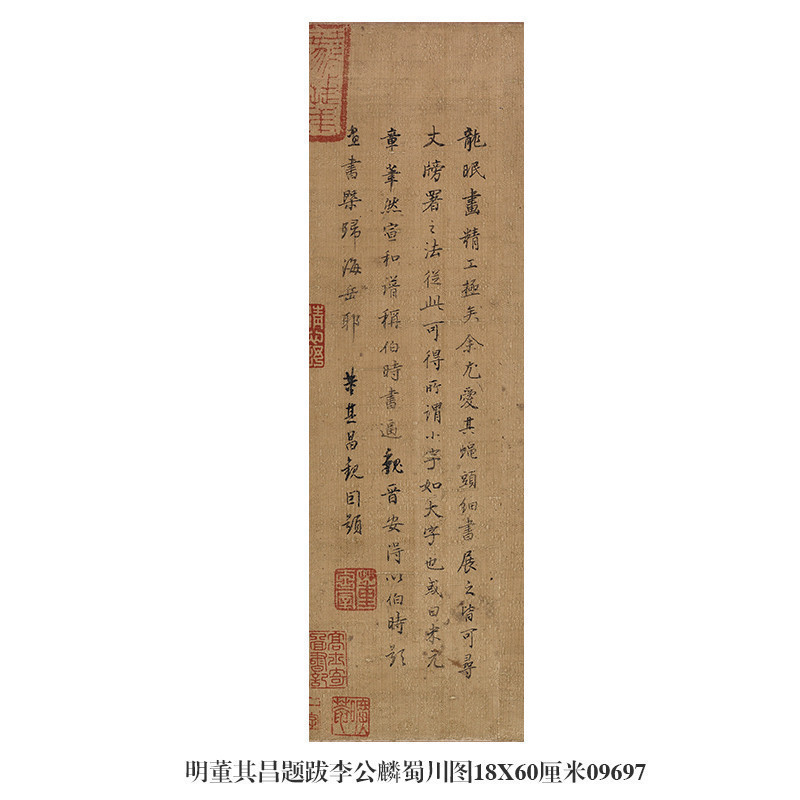 龍眠畫精工極矣余尤愛其蠅頭細書展之皆可尋
丈牓署之法從此可得所謂小字如大字也或曰米元
章筆然宣和譜稱伯時書逼魏晉安得以伯時題
畫書槩歸海岳耶 董其昌觀因題
明董其昌题跋李公麟蜀川图18X60厘米09697